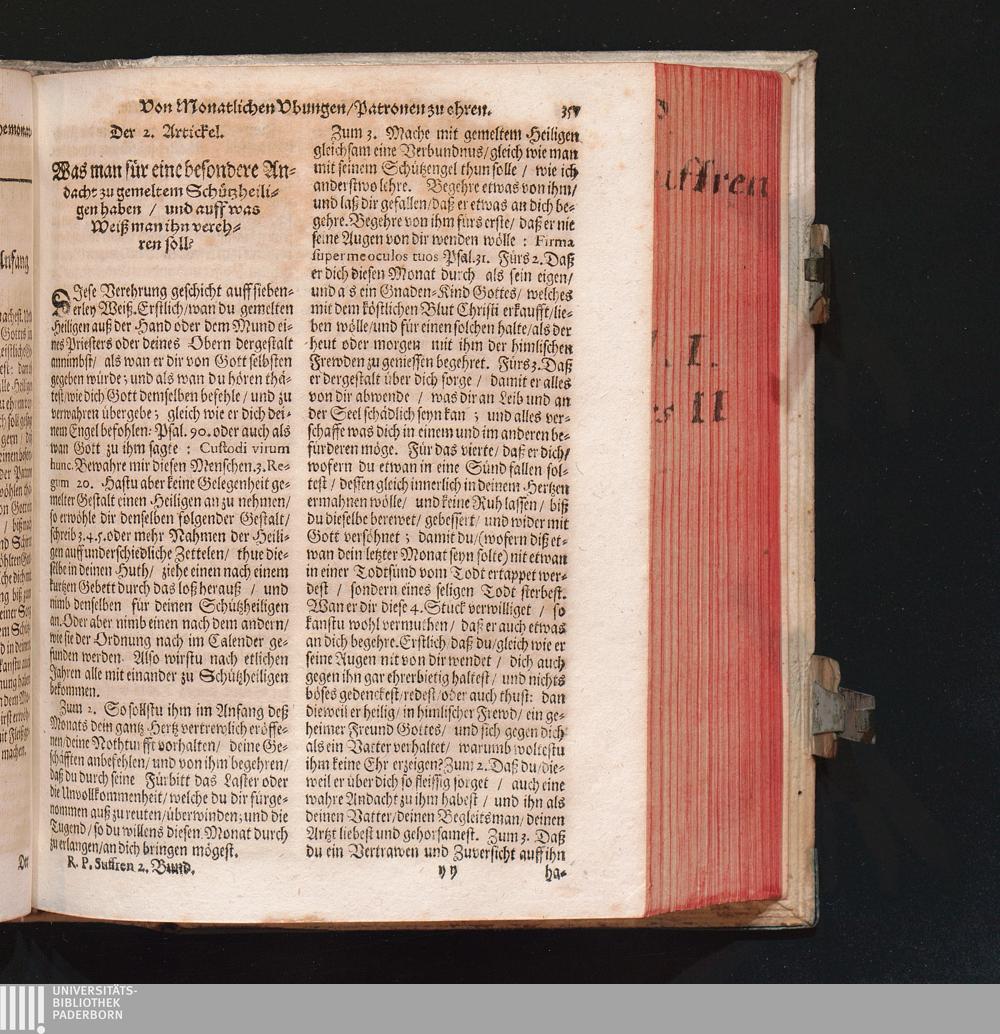 Von Monatlichen Vbungen/Patronen zu ehren. 35v
Der 2. Artickel.
Was man für eine besondere An-
dacht zu gemeltem Schützheili-
gen haben / und auff was
Weiß man ihn vereh-
ren soll?
DJese Verehrung geschicht auff sieben-
erley Weiß. Erstlich/wan du gemelten
Heiligen auß der Hand oder dem Mund ei-
nes Priesters oder deines Obern dergestalt
annimbst/ als wan er dir von Gott selbsten
gegeben würde; und als wan du hören thä-
test/wie dich Gott demselben befehle/ und zu
verwahren übergebe; gleich wie er dich dei-
nem Engel befohlen: Psal. 90. oder auch als
wan Gott zu ihm sagte : Custodi virum
hunc. Bewahre mir diesen Menschen.3. Re-
gum 20. Hastu aber keine Gelegenheit ge-
melter Gestalt einen Heiligen an zu nehmen/
so erwöhle dir denselben folgender Gestalt/
schreib 3.4.5.oder mehr Nahmen der Heili-
gen auff underschiedliche Zettelen/ thue die-
selbe in deinen Huth/ ziehe einen nach einem
kurtzen Gebett durch das loß herauß / und
nimb denselben für deinen Schützheiligen
an. Oder aber nimb einen nach dem andern/
wie sie der Ordnung nach im Calender ge-
funden werden. Also wirstu nach etlichen
Jahren alle mit einander zu Schützheiligen
bekommen.
Zum 2. So sollstu ihm im Anfang deß
Monats dein gantz Hertz vertrewlich eröffe-
nen/deine Nothturfft vorhalten/ deine Ge-
schäfften anbefehlen/ und von ihm begehren/
daß du durch seine Fürbitt das Laster oder
die Unvollkommenheit/ welche du dir fürge-
nommen auß zu reuten/überwinden; und die
Tugend/ so du willens diesen Monat durch
zu erlangen/an dich bringen mögest.
R. P. Suffren 2. Bund.
Zum 3. Mache mit gemeltem Heiligen
gleichsam eine Verbundnus/ gleich wie man
mit seinem Schützengel thun solle / wie ich
anderstwo lehre. Begehre etwas von ihm/
und laß dir gefallen/daß er etwas an dich be-
gehre. Begehre von ihm fürs erste/ daß er nie
seine Augen von dir wenden wölle : Firma
super me oculos tuos Psal.31. Fürs 2. Daß
er dich diesen Monat durch als sein eigen/
und a s ein Gnaden-Kind Gottes/ welches
mit dem köstlichen Blut Christi erkaufft/lie-
ben wölle/und für einen solchen halte/als der
heut oder morgen mit ihm der himlischen
Frewden zu geniessen begehret. Fürs 3. Daß
er dergestalt über dich sorge / damit er alles
von dir abwende / was dir an Leib und an
der Seel schädlich seyn kan ; und alles ver-
schaffe was dich in einem und im anderen be-
fürderen möge. Für das vierte/ daß er dich/
wofern du etwan in eine Sünd fallen sol-
test/ dessen gleich innerlich in deinem Hertzen
ermahnen wölle / und keine Ruh lassen/ biß
du dieselbe berewet/ gebessert/ und wider mit
Gott versöhnet ; damit du/(wofern diß et-
wan dein letzter Monat seyn solte) nit etwan
in einer Todtsünd vom Todt ertappet wer-
dest / sondern eines seligen Todt sterbest.
Wan er dir diese 4. Stuck verwilliget / so
kanstu wohl vermuthen/ daß er auch etwas
an dich begehre. Erstlich/daß du/gleich wie er
seine Augen nit von dir wendet / dich auch
gegen ihn gar ehrerbietig haltest/ und nichts
böses gedenckest/redest/oder auch thust: dan
dieweil er heilig/in himlischer Frewd/ ein ge-
heimer Freund Gottes/ und sich gegen dich
als ein Vatter verhaltet/ warumb woltestu
ihm keine Ehr erzeigen? Zum 2. Daß du/die-
weil er über dich so fleissig sorget / auch eine
wahre Andacht zu ihm habest / und ihn als
deinen Vatter/deinen Begleitsman/deinen
Artzt liebest und gehorsamest. Zum 3. Daß
du ein Vertrawen und Zuversicht auff ihn
yy ha-
uffren
I.
II
UNIVERSITÄTS-
BIBLIOTHEK
PADERBORN